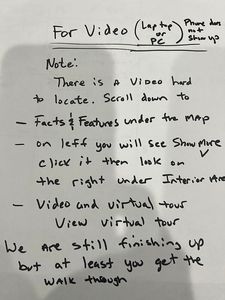 For Video (Laptop or PC) Phone does not show up
Note:
There is a Video hard
to locate. Scroll down to
- Facts & Features under the MAP
- on leff you will see Show More
click it then look on
the right under Interior Are
- Video and virtual tour
View virtual tour
We are still finishing up
but at least you get the
walk though